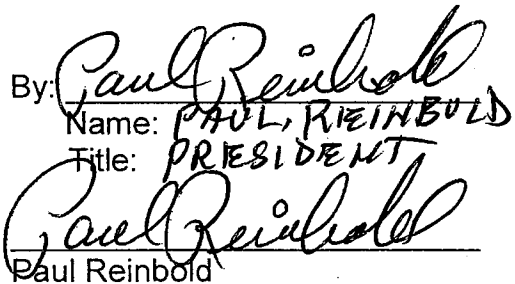 By: Paul Reinbold
Name: PAUL, REINBOLD
Title: PRESIDENT
Paul Reinbold
Paul Reinbold